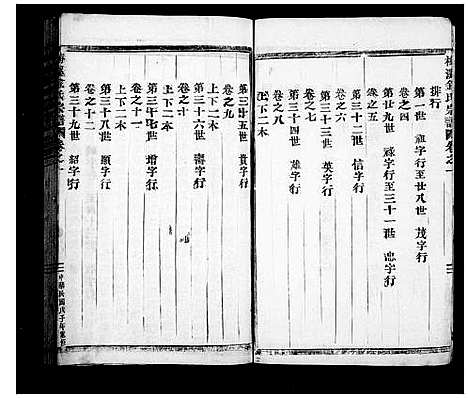 排行
第一世 祖字行至廿八世 茂字行
卷之四
第廿九世 祿字行至三十一世 忠字行
卷之五
第三十二世 信字行
卷之六
第三十三世 英字行
卷之七
第三十四世 雄字行
卷之八
上下二本
第三十五世 貴字行
卷之九
上下二本
第三十六世 壽字行
卷之十
上下二本
第三十七世 增字行
卷之十一
第三十八世 顯字行
卷之十二
第三十九世 紹字行
中華民國戊子年重修